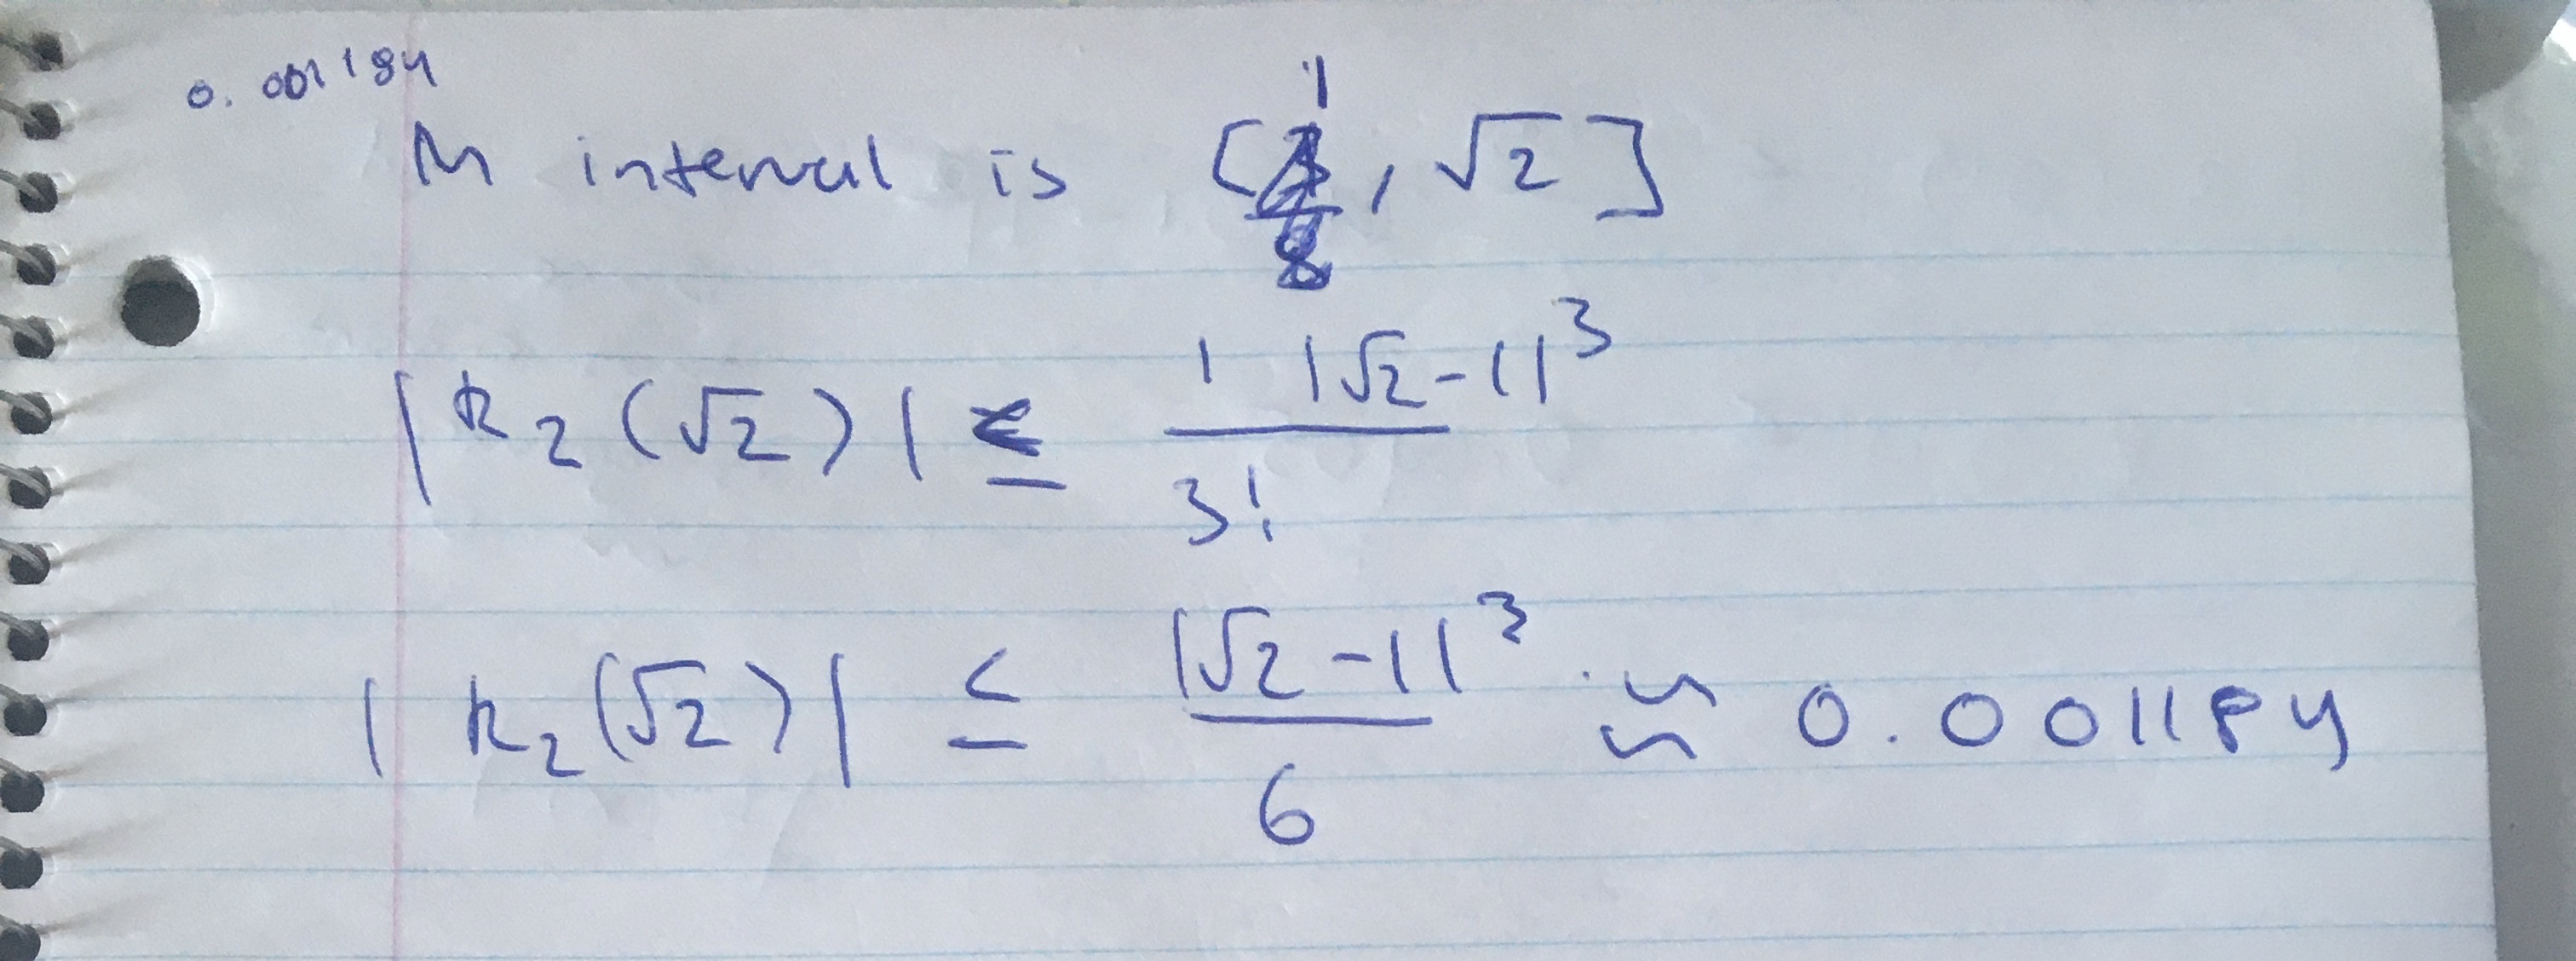 0.001184
M interval is [1, √2]
|R₂(√2)| ≤ 1 |√2-1|³ / 3!
|R₂(√2)| ≤ |√2-1|³ / 6 ≈ 0.001184